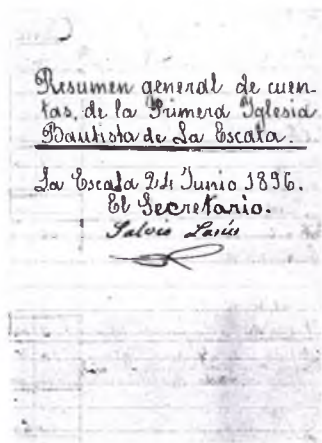 Resumen general de cuen-
tas, de la Primera Yglesia
Bautista de La Escala.
La Escala 24 Junio 1896.
El Secretario.
Salvio